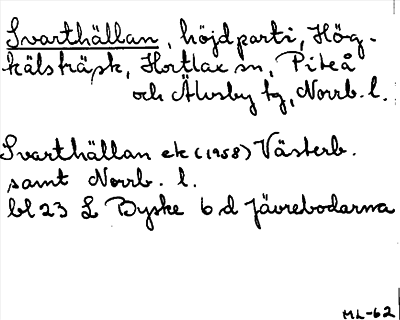 Svarthällan, höjdparti, Hög-
kälsträsk, Hortlax sn, Piteå
och Älvsby tg, Norrb. l.
Svarthällan ek (1958) Västerb.
samt Norrb. l.
bl 23 L Byske 6 d Jävrebodarna
ML-62